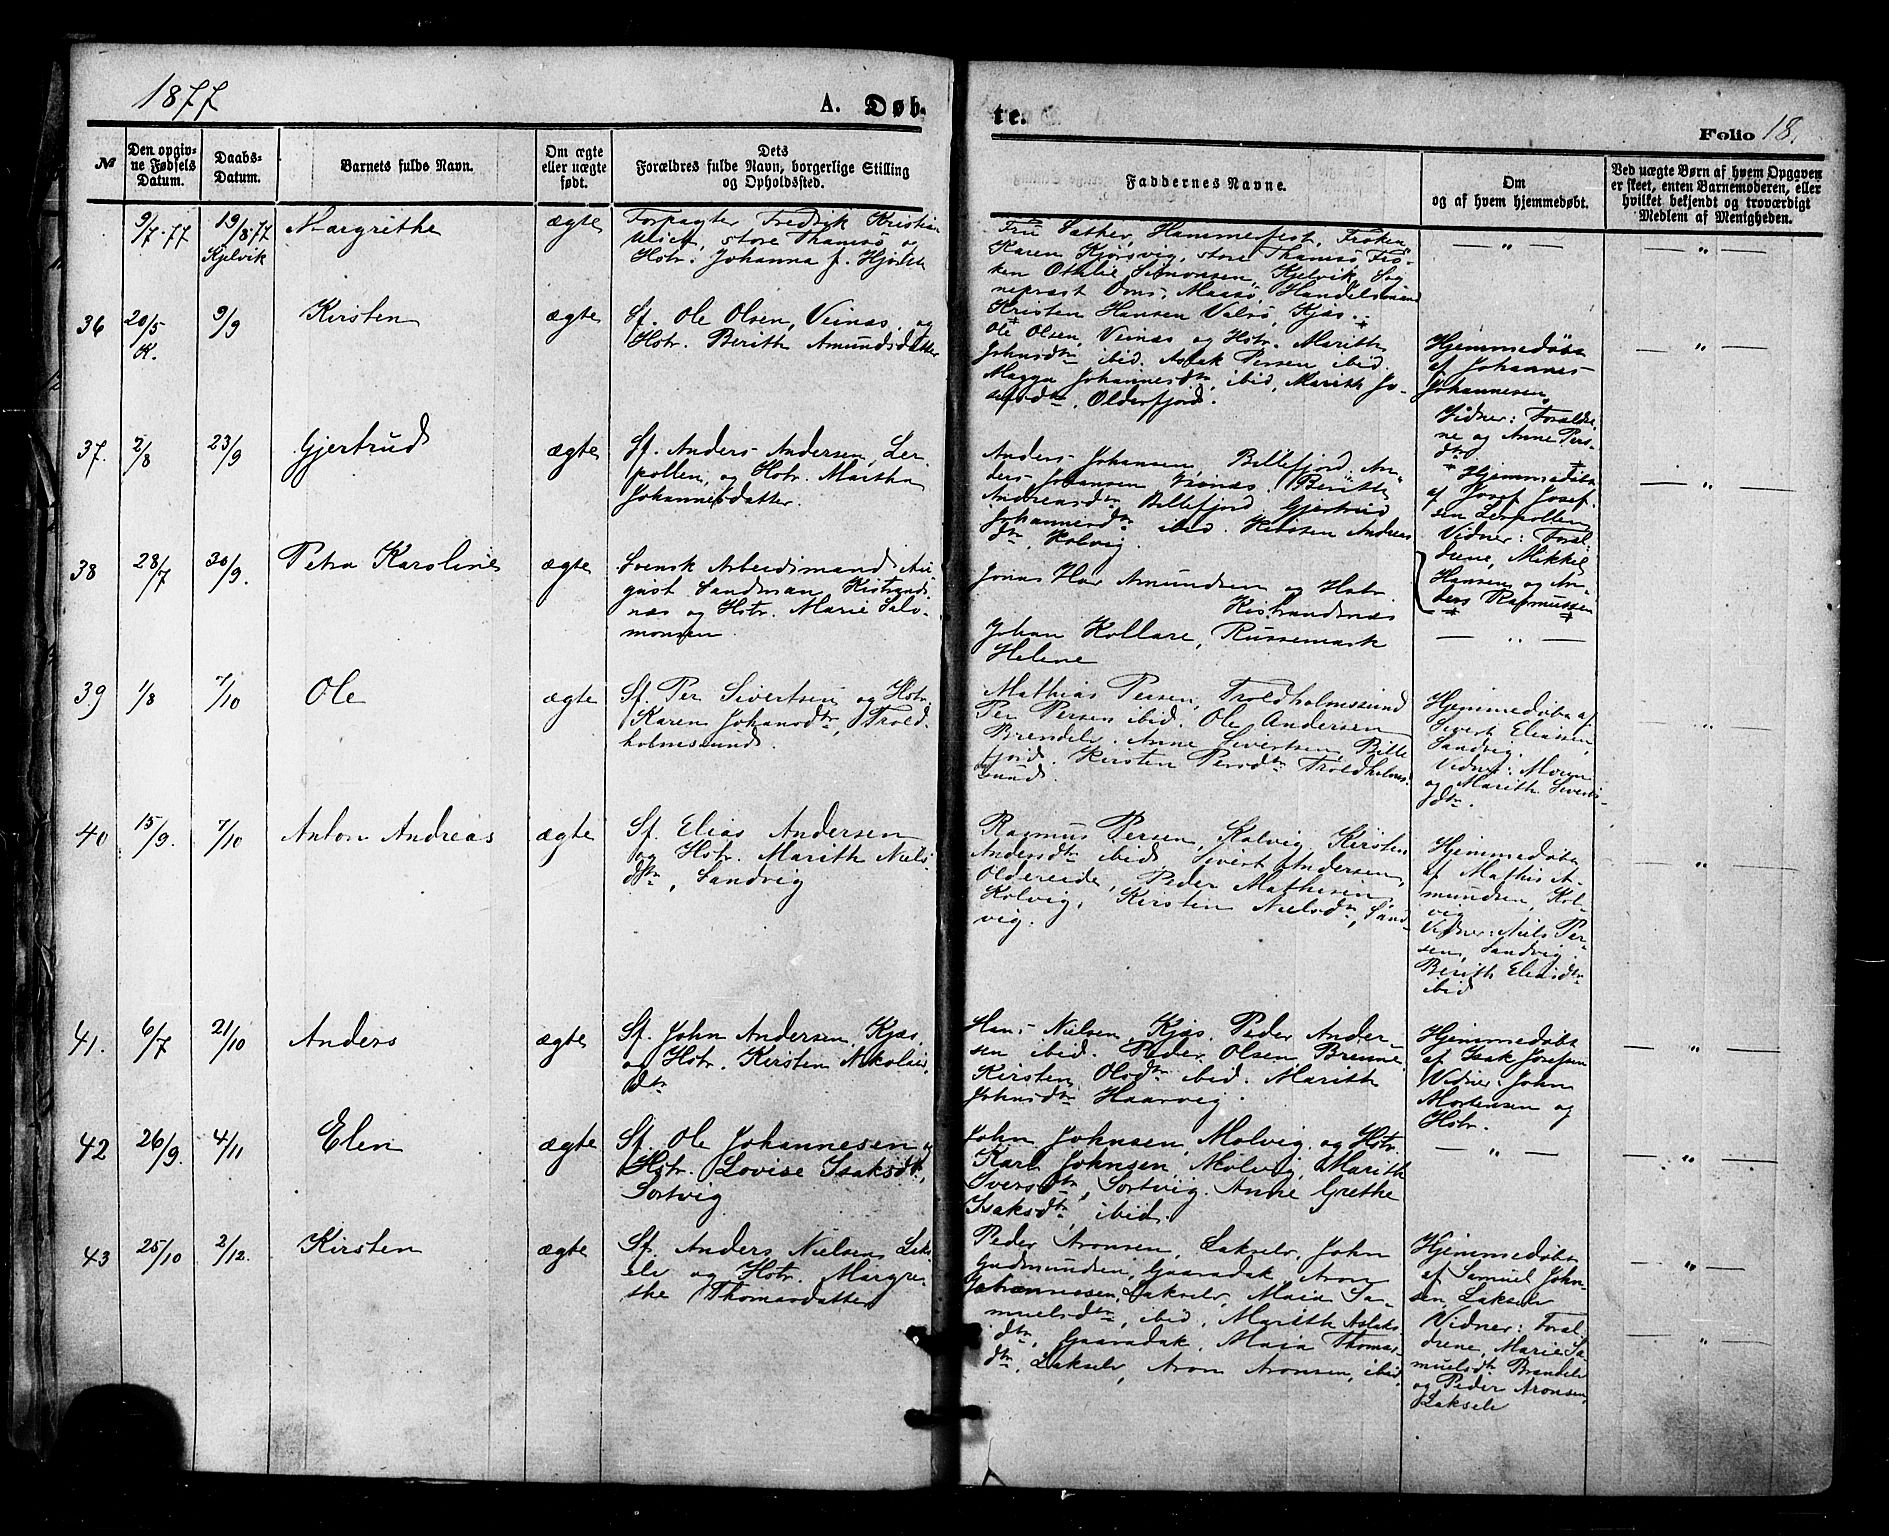 1877
A. Døb-
te.
Folio 18.
№
Den opgiv-
ne Fødsels
Datum.
Daabs-
Datum.
Barnets fulde Navn.
Om ægte
eller uægte
født.
Dets
Forældres fulde Navn, borgerlige Stilling
og Opholdssted.
Faddernes Navne.
Om
og af hvem hjemmedøbt.
Ved uægte Børn af hvem Opgaven
er skeet, enten Barnemoderen, eller
hvilket bekjendt og troværdigt
Medlem af Menigheden.
9/7.77
19/8 77
Kjelvik
Margrethe
ægte
Forpagter Fredrik Kristian
Ulich, store Thamsø og
Hstr. Johanna f.
Fru Sæther, Hammerfest, Frøken
Karen Kjørsvig, store Thamsø Frø-
ken Othilie Simonsen, Kjelvik, Sog
nepræst Oms, Maasø, Handelsmand
Kristen Hansen Valsø, Kjæs.
— " —
— " —
36
20/5
K.
9/9
Kirsten
ægte
Sf. Ole Olsen, Veinæs, og
Hstr. Berith Amundsdatter
Ole Olsen, Veinæs og Hstr. Marith
Johnsdtr ibid. Aslak Persen ibid.
Magga Johannesdtr, ibid, Marith Jo-
sefsdtr, Olderfjord.
Hjemmedøbt
af Johannes
Johannesen,
Vidner: Forældre-
ne og Anne Pers-
dtr
— " —
37.
2/8
23/9
Gjertrud
ægte
Sf. Anders Andersen, Ler-
pollen, og Hstr. Martha
Johannesdatter.
Anders Johansen, Billefjord, An-
ders Johansen Berith
Andreasdtr Billefjord, Gjertrud
Johannesdtr ibid. Kirsten Anders
dtr, Kolvig.
* Hjemmedøbt
af Josef Josef
sen Lerpollen
Vidner: Foræl-
drene, Mikkel
Hansen og An-
ders Rasmussen
— " —
38
28/7
30/9.
Petra Karoline
ægte
Svensk Arbeidsmand Au-
gust Sandman, Kistrands-
næs og Hstr. Marie Salo-
monsen.
Jonas Amundsen og Hstr.
Kistrandsnæs
Johan Kollare, Russemark
Helene
— " —
39
1/8
7/10
Ole
ægte
Sf. Per Sivertsen og Hstr.
Karen Johansdtr, Trold-
holmsund.
Mathias Persen, Troldholmsund
Per Persen ibid. Ole Andersen
Brendelv. Anne Sivertsen, Bille
fjord. Kirsten Persdtr Troldholm
sund.
Hjemmedøbt af
Sivert Eliassen,
Sandvig.
Vidner:
og Marith Siverts-
dtr.
— " —
40
15/9.
7/10
Anton Andreas
ægte
Sf. Elias Andersen
og Hstr. Marith Niels
dtr, Sandvig
Rasmus Persen, Kolvig. Kirsten
Andersdtr ibid. Sivert Andersen,
Oldereide, Peder Mathesen,
Kolvig, Kirsten Nielsdtr, Sand-
vig.
Hjemmedøbt
af Mathis A-
mundsen, Kol-
vig
Vidner: Niels Per-
sen, Sandvig.
Berith Eliasdtr
ibid
— " —
41.
6/7
21/10
Anders
ægte
Sf. John Andersen, Kjæs,
og Hstr. Kirsten Nikolais
dtr
Hans Nielsen, Kjæs. Peder Ander-
sen ibid. Peder Olsen, Brenne
Kirsten Olsdtr ibid. Marith
Johnsdtr Haarvig.
Hjemmedøbt
af Isak Josefsen
Vidner: John
Mortensen og
Hstr.
— " —
42
26/9.
4/11
Elen
ægte
Sf. Ole Johannesen og
Hstr. Lovise Isaksdtr,
Sortvig
John Johnsen, Molvig, og Hstr.
Karl Johnsen, Molvig, Marith
Iversdtr, Sortvig. Anne Grethe
Isaksdtr, ibid.
— " —
— " —
43
25/10
2/12.
Kirsten
ægte
Sf. Anders Nielsen, Laks
elv og Hstr. Margre-
the Thomasdatter
Peder Aronsen, Lakselv, John
Gudmundsen, Gaaradak, Aron
Johannessen, Lakselv, Maia Sa-
muelsdtr, ibid, Marith Aslaks
dtr, Gaaradak, Maia Thomas-
dtr, Lakselv, Aron Aronsen, ibid.
Hjemmedøbt
af Samuel John-
sen, Lakselv
Vidner: Foræl-
drene, Marie Sa-
muelsdtr Brendelv
og Peder Aronsen,
Lakselv
— " —
— " —